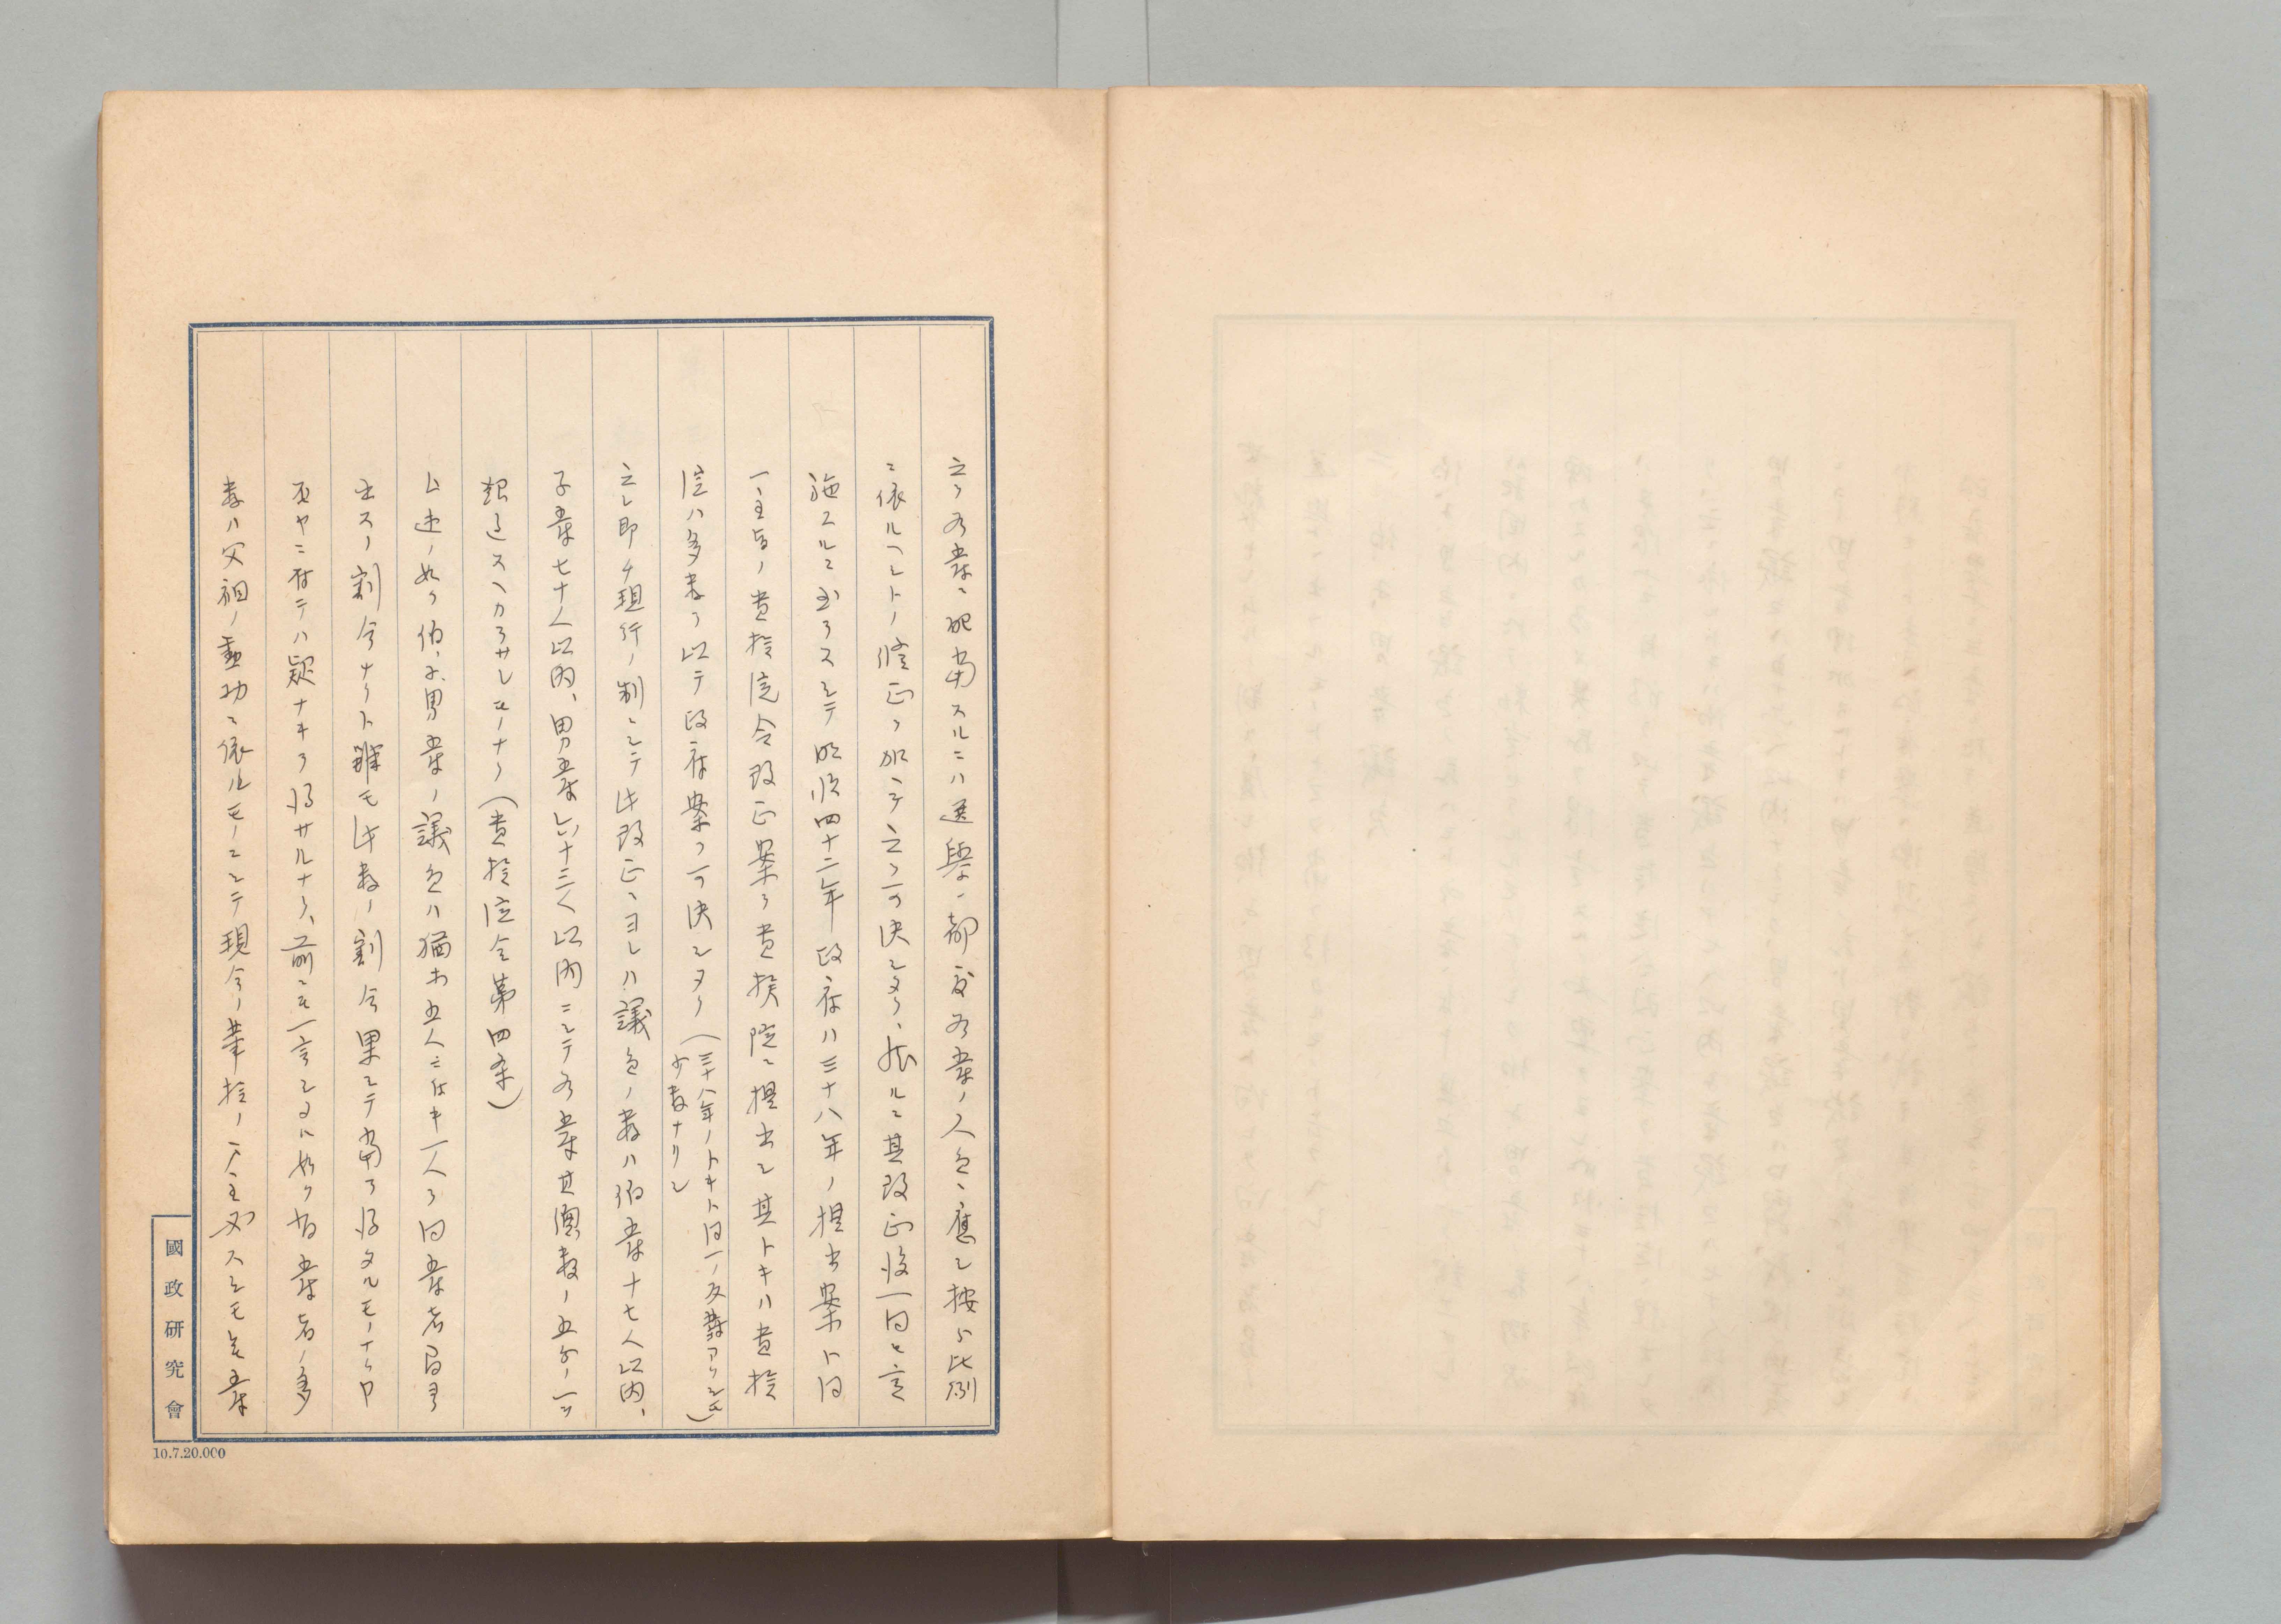 之ヲ各爵ニ配当スルニハ選挙ノ都度各爵ノ人員ニ応シ按分比例
ニ依ルヘシトノ修正ヲ加ヘテ之ヲ可決シタリ、然ルニ其改正後一回モ実
施スルニ至ラスシテ明治四十二年政府ハ三十八年ノ提出案ト同
一主旨ノ貴族院令改正案ヲ貴族院ニ提出シ其トキハ貴族
院ハ多数ヲ以テ政府案ヲ可決シタリ(三十八年ノトキト同一ノ反対アリシモ
少数ナリシ)
之レ即チ現行ノ制ニシテ此改正ニヨレハ議員ノ数ハ伯爵十七人以内、
子爵七十人以内、男爵六十三人以内ニシテ各爵其総数ノ五分ノ一ヲ
超過スヘカラサルモノナリ(貴族院令第四条)
上述ノ如ク伯、子、男爵ノ議員ハ猶ホ五人ニ付キ一人ヲ同爵者間ヨリ
出スノ割合ナリト雖モ此数ノ割合果シテ当ヲ得タルモノナリヤ
否ヤニ付テハ疑ナキヲ得サルナリ、前ニモ一言シタル如ク有爵者ノ多
数ハ父祖ノ勲功ニ依ルモノニシテ現今ノ華族ノ戸主必スシモ其爵
國政研究會
10.7.20.000